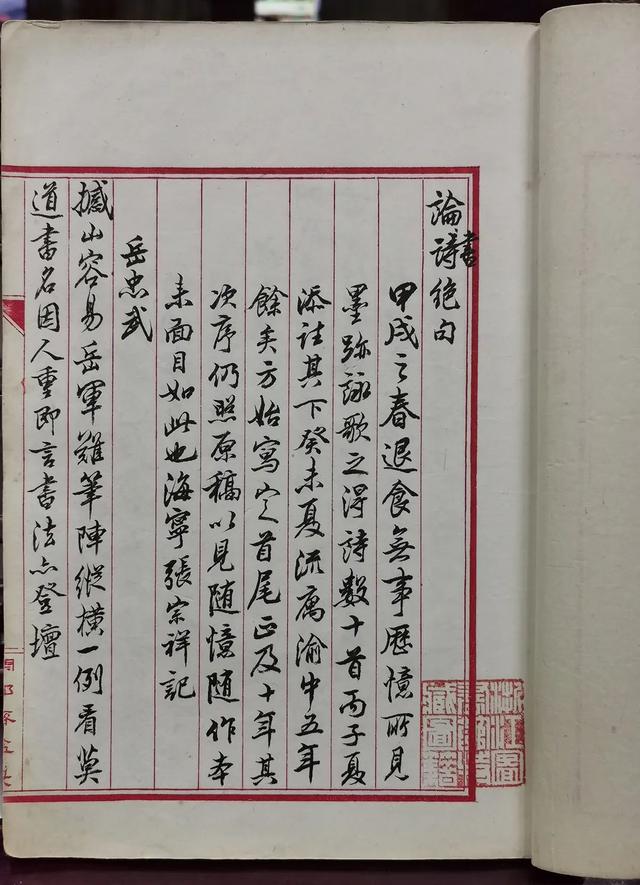 論書詩絕句
甲戌之春退食無事歷憶所見
墨跡詠歌之得詩數十首丙子夏
添註其下癸未夏流寓渝中五年
餘矣方始寫定首尾正及十年其
次序仍照原稿以見隨憶隨作本
来面目如此也海寧張宗祥記
岳忠武
撼山容易岳軍難筆陣縱橫一例看莫
道書名因人重即言書法亦登壇
浙江圖
書館
藏圖籍